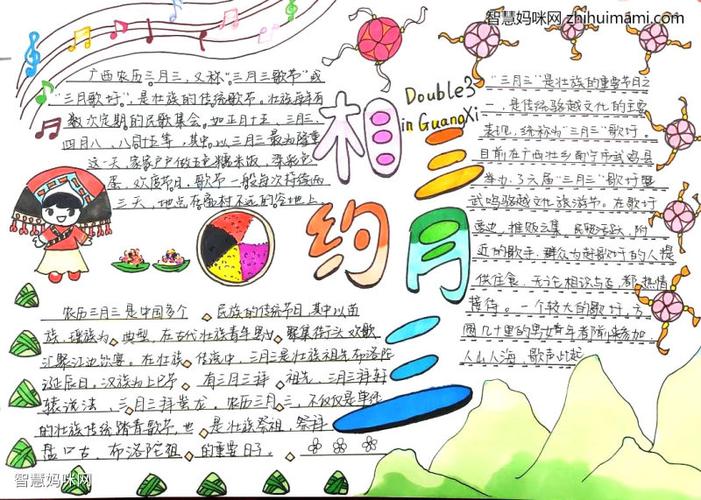 智慧妈咪网 zhihuimami.com
相约
三月三
Double3
in GuangXi
广西农历三月三,又称"三月三歌节"或
"三月歌圩",是壮族的传统歌节。壮族每年有
数次定期的民歌集会,如正月十五、三月三、
四月八、八月十五等,其中以三月三最为隆重
这一天,家家户户做五色糯米饭,染彩色
蛋,欢度节日,歌节一般每次持续两
三天,地点在离村不远的空地上
"三月三"是壮族的重要节日之
一,是传统骆越文化的主要
表现,统称为"三月三"歌圩。
目前在广西壮乡南宁市武鸣县
举办了六届"三月三"歌圩暨
武鸣骆越文化旅游节。在歌圩
旁边,摊贩云集,民贸活跃,附
近的群众为赶歌圩的人提
供住食,无论相识与否,都热情
接待。一个较大的歌圩,方
圆几十里的男女青年都前来参加
人山人海,歌声此起
农历三月三是中国多个民族的传统节日,其中以苗
族、瑶族为典型,在古代壮族青年男女聚集街头欢歌
汇聚江边饮宴。在壮族传统中,三月三是壮族祖先布洛陀
诞辰日,汉族为上巳节,有三月三拜祖先,三月三拜轩
辕说法、三月三拜炎龙,农历三月三,不仅仅是单纯
的壮族传统踏青歌节,也是壮族祭祖,祭拜
盘古、布洛陀祖的重要日子。
智慧妈咪网